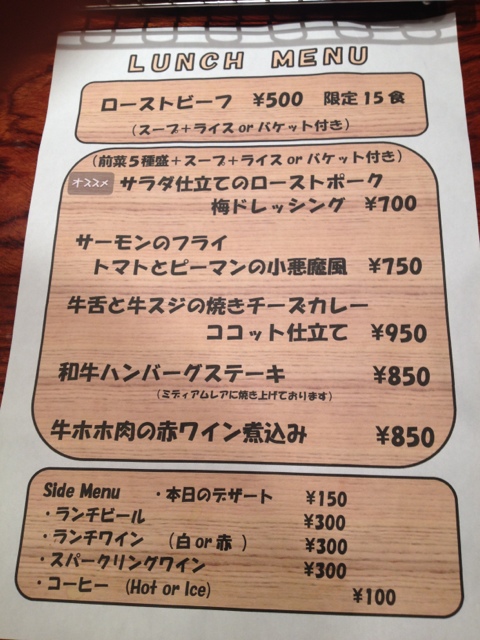 LUNCH MENU
ローストビーフ ¥500 限定15食
(スープ+ライスorバケット付き)
(前菜5種盛+スープ+ライスorバケット付き)
オススメ サラダ仕立てのローストポーク
梅ドレッシング ¥700
サーモンのフライ
トマトとピーマンの小悪魔風 ¥750
牛舌と牛スジの焼きチーズカレー
ココット仕立て ¥950
和牛ハンバーグステーキ ¥850
(ミディアムレアに焼き上げております)
牛ホホ肉の赤ワイン煮込み ¥850
Side Menu ・本日のデザート ¥150
・ランチビール ¥300
・ランチワイン (白or赤) ¥300
・スパークリングワイン ¥300
・コーヒー (Hot or Ice) ¥100